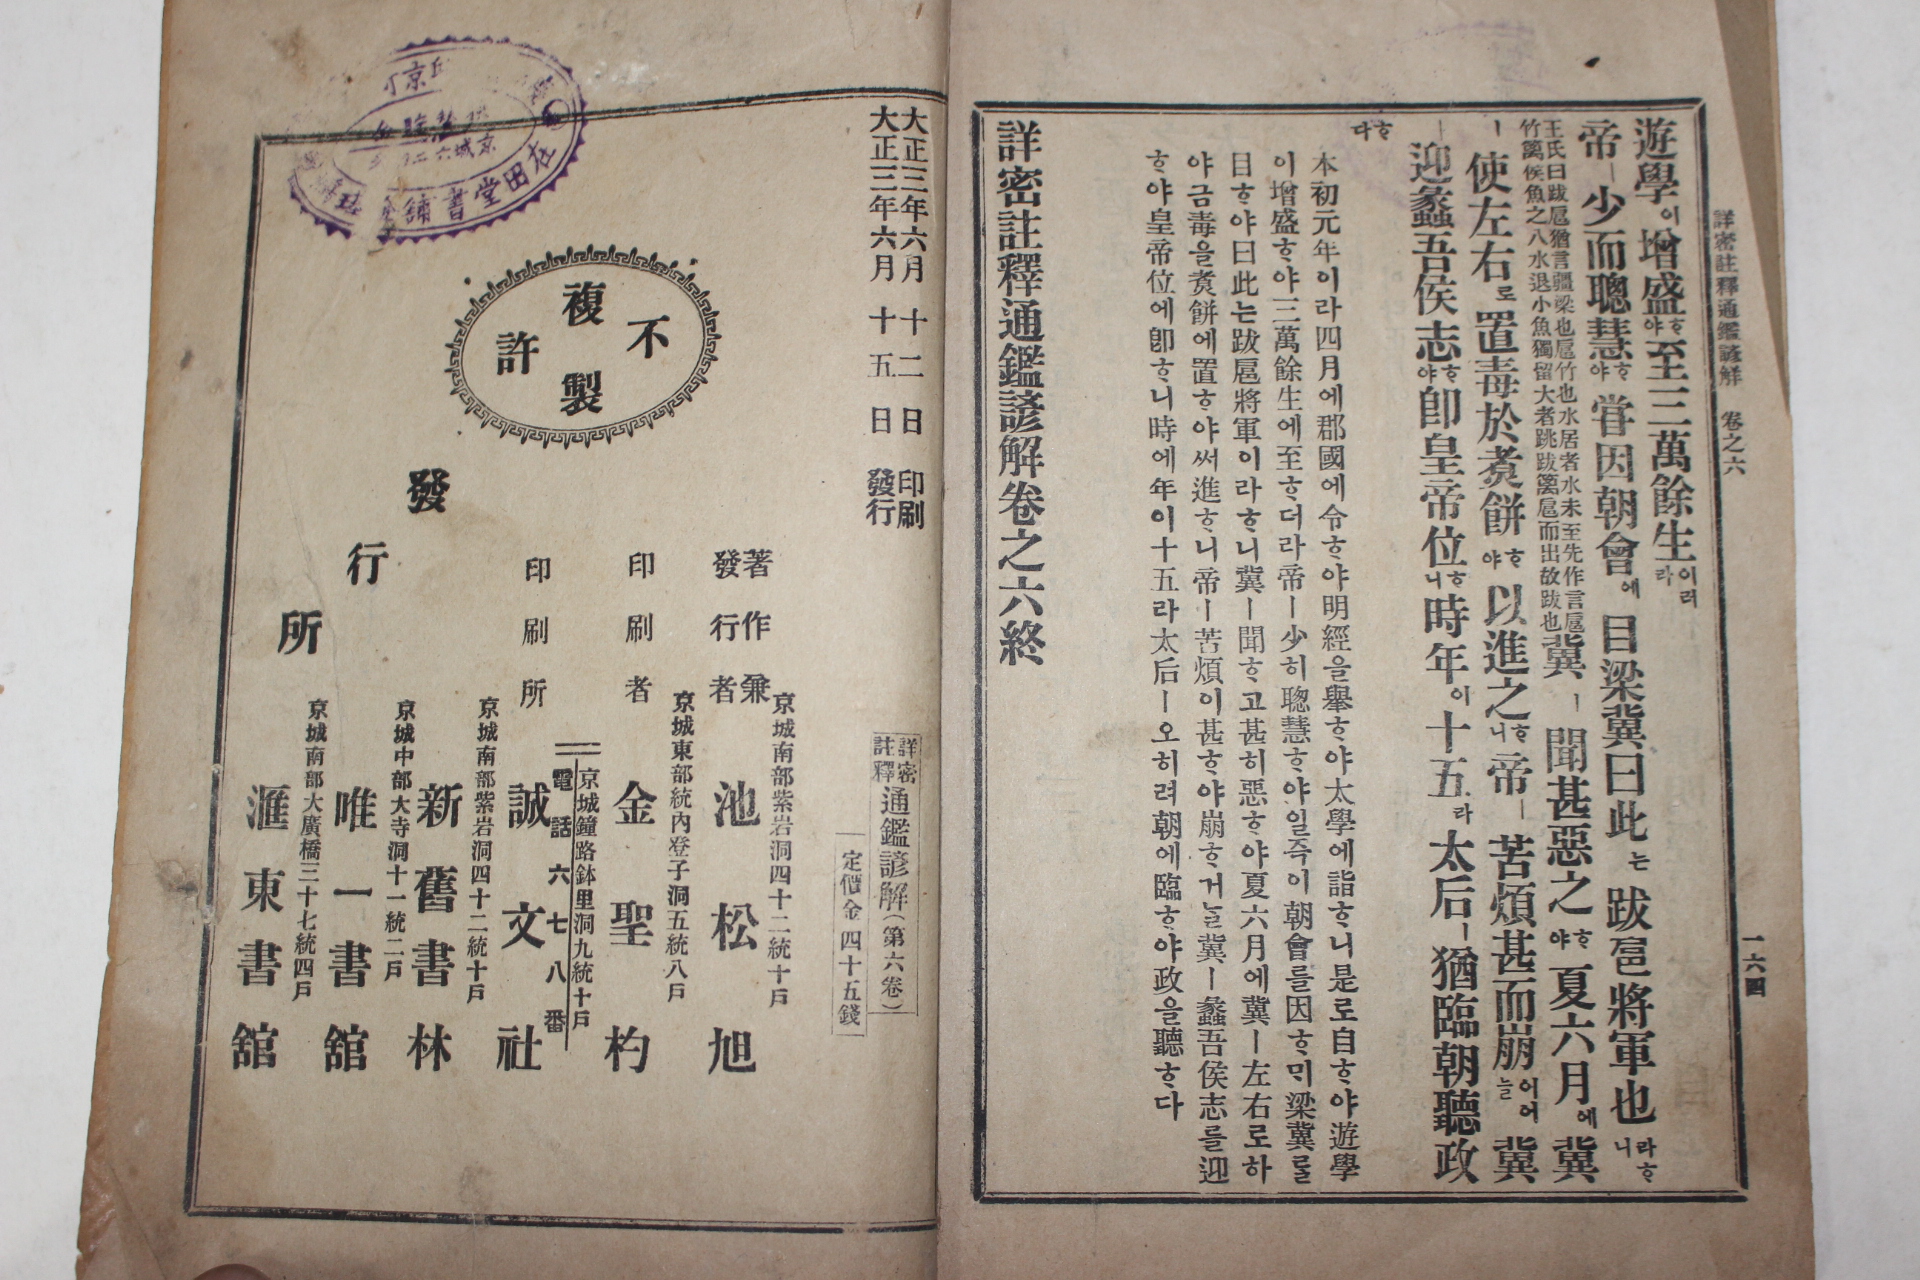 詳密註釋通鑑諺解 卷之六
一六四
遊學이增盛ᄒᆞ야至三萬餘生이러라
帝ㅣ少而聰慧ᄒᆞ야嘗因朝會에目梁冀曰此는跋扈將軍也라ᄒᆞ니
王氏曰跋扈猶言疆梁也扈竹也水居者水未至先作言扈
竹籬候魚之入水退小魚獨留大者跳跋籬扈而出故跋也
冀ㅣ聞甚惡之ᄒᆞ야夏六月에冀
ㅣ使左右로置毒於煑餅ᄒᆞ야以進之ᄒᆞ니帝ㅣ苦煩甚而崩이어늘冀
ㅣ迎蠡吾侯志ᄒᆞ야卽皇帝位ᄒᆞ니時年이十五라太后ㅣ猶臨朝聽政
ᄒᆞ다
本初元年이라四月에郡國에令ᄒᆞ야明經을擧ᄒᆞ야太學에詣ᄒᆞ니是로自ᄒᆞ야遊學
이增盛ᄒᆞ야三萬餘生에至ᄒᆞ더라帝ㅣ少히聰慧ᄒᆞ야일즉이朝會를因ᄒᆞᄆᆡ梁冀를
目ᄒᆞ야曰此는跋扈將軍이라ᄒᆞ니冀ㅣ聞ᄒᆞ고甚히惡ᄒᆞ야夏六月에冀ㅣ左右로하
야금毒을煑餅에置ᄒᆞ야써進ᄒᆞ니帝ㅣ苦煩이甚ᄒᆞ야崩ᄒᆞ거늘冀ㅣ蠡吾侯志를迎
ᄒᆞ야皇帝位에卽ᄒᆞ니時에年이十五라太后ㅣ오히려朝에臨ᄒᆞ야政을聽ᄒᆞ다
詳密註釋通鑑諺解卷之六終
大正三年六月十二日 印刷
大正三年六月十五日 發行
詳密註釋通鑑諺解(第六卷)
定價金四十五錢
不許複製
京城南部紫岩洞四十二統十戶
著作兼發行者 池松旭
京城東部統內登子洞五統八戶
印刷者 金聖杓
京城鐘路鉢里洞九統十戶
電話六七八番
印刷所 誠文社
發行所
京城南部紫岩洞四十二統十戶
新舊書林
京城中部大寺洞十一統二戶
唯一書館
京城南部大廣橋三十七統四戶
滙東書舘
在田堂書鋪